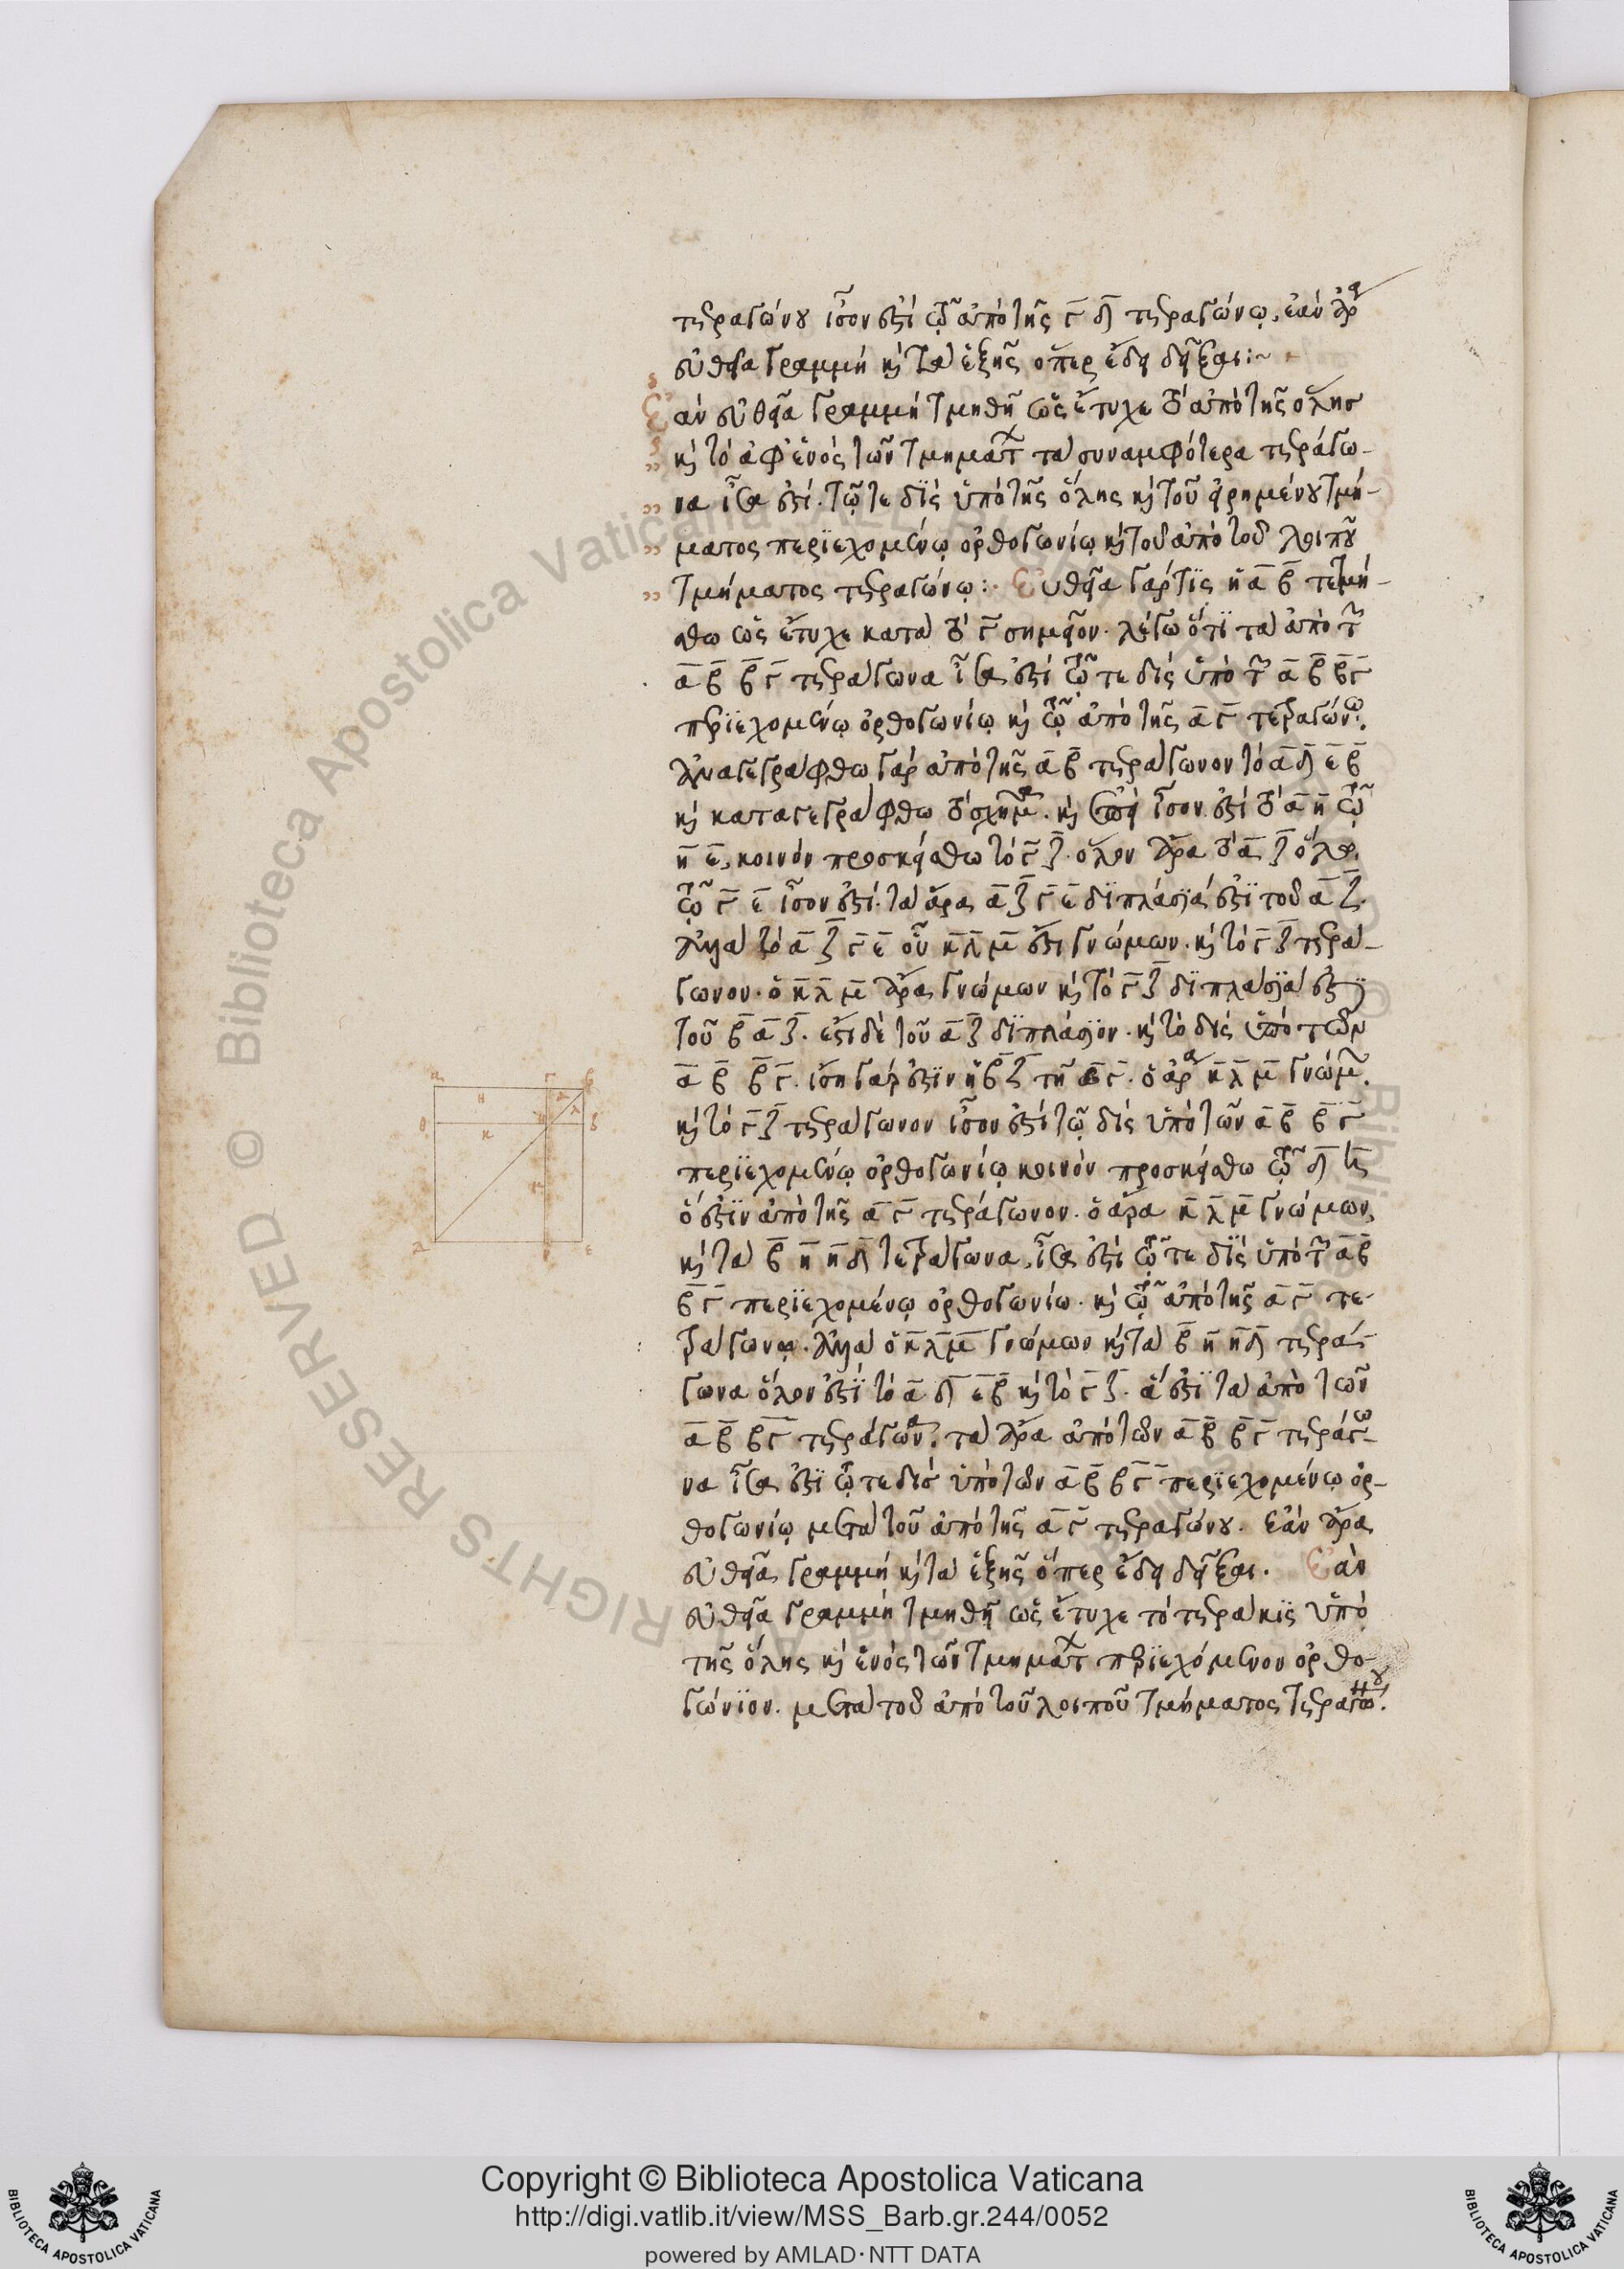 τετραγώνου ἴσον ἐστί τῷ ἀπὸ τῆς γ δ τετραγώνῳ. ἐὰν ἄρα
εὐθεῖα γραμμή κ τὰ ἑξῆς ὅπερ ἔδει δεῖξαι:~
Ἐὰν εὐθεῖα γραμμή τμηθῇ ὡς ἔτυχε τὸ ἀπὸ τῆς ὅλης
κ τὸ ἀφ ἑνὸς τῶν τμημάτ τὰ συναμφότερα τετράγω-
να ἴσα ἐστί. τῷ τε δὶς ὑπὸ τῆς ὅλης κ τοῦ εἰρημένου τμή-
ματος περιεχομένῳ ὀρθογωνίῳ κ τοῦ ἀπὸ τοῦ λοιποῦ
τμήματος τετραγώνῳ:· Εὐθεῖα γάρ τις ἡ α β τετμή-
σθω ὡς ἔτυχε κατὰ τὸ γ σημεῖον. λέγω ὅτι τὰ ἀπὸ τῶν
α β β γ τετράγωνα ἴσα ἐστί τῷ τε δὶς ὑπὸ τῶν α β β γ
περιεχομένῳ ὀρθογωνίῳ κ τῷ ἀπὸ τῆς α γ τετραγώνῳ.
Ἀναγεγράφθω γάρ ἀπὸ τῆς α β τετράγωνον τὸ α δ ε β
κ καταγεγράφθω τὸ σχῆμα. κ ἐπεὶ ἴσον ἐστί τὸ α η τῷ
η ε, κοινόν προσκείσθω τὸ γ ζ. ὅλον ἄρα τὸ α ζ ὅλῳ
τῷ γ ε ἴσον ἐστί. τὰ ἄρα α ζ γ ε διπλάσιά ἐστι τοῦ α ζ.
Ἀλλὰ τὸ α ζ γ ε οὗ κ λ μ ἐστι γνώμων. κ τὸ γ ζ τετρά-
γωνον. ὁ κ λ μ ἄρα γνώμων κ τὸ γ ζ διπλάσιά ἐστι
τοῦ β α ζ. ἔστι δὲ τοῦ α ζ διπλάσιον. κ τὸ δὶς ὑπὸ τῶν
α β β γ. ἴση γάρ ἐστιν ἡ β ζ τῇ β γ. ὁ ἄρα κ λ μ γνώμ.
κ τὸ γ ζ τετράγωνον ἴσον ἐστί τῷ δὶς ὑπὸ τῶν α β β γ
περιεχομένῳ ὀρθογωνίῳ κοινόν προσκείσθω τῷ δ
ὅ ἐστιν ἀπὸ τῆς α γ τετράγωνον. ὁ ἄρα κ λ μ γνώμων
κ τὰ β η η δ τετράγωνα, ἴσα ἐστί τῷ τε δὶς ὑπὸ τῶν α β
β γ περιεχομένῳ ὀρθογωνίω. κ τῷ ἀπὸ τῆς α γ τε-
τραγώνῳ. Ἀλλὰ ὁ κ λ μ γνώμων κ τὰ β η η δ τετρά-
γωνα ὅλον ἐστὶ τὸ α δ ε β κ τὸ γ ζ. ἅ ἐστι τὰ ἀπὸ τῶν
α β β γ τετράγωνα. τὰ ἄρα ἀπὸ τῶν α β β γ τετράγω-
να ἴσα ἐστὶ τῷ τε δὶς ὑπὸ τῶν α β β γ περιεχομένῳ ὀρ-
θογωνίῳ μετὰ τοῦ ἀπὸ τῆς α γ τετραγώνου. ἐὰν ἄρα
εὐθεῖα γραμμή κ τὰ ἑξῆς ὅπερ ἔδει δεῖξαι. Ἐὰν
εὐθεῖα γραμμή τμηθῇ ὡς ἔτυχε τὸ τετράκις ὑπὸ
τῆς ὅλης κ ἑνὸς τῶν τμημάτ περιεχόμενον ὀρθο-
γώνιον. μετὰ τοῦ ἀπὸ τοῦ λοιποῦ τμήματος τετραγώνου.
α γ β
η λ
θ κ ζ
μ
δ ε
Copyright © Biblioteca Apostolica Vaticana
http://digi.vatlib.it/view/MSS_Barb.gr.244/0052
powered by AMLAD·NTT DATA
BIBLIOTECA APOSTOLICA VATICANA
BIBLIOTECA APOSTOLICA VATICANA
© Biblioteca Apostolica Vaticana ALL RIGHTS RESERVED